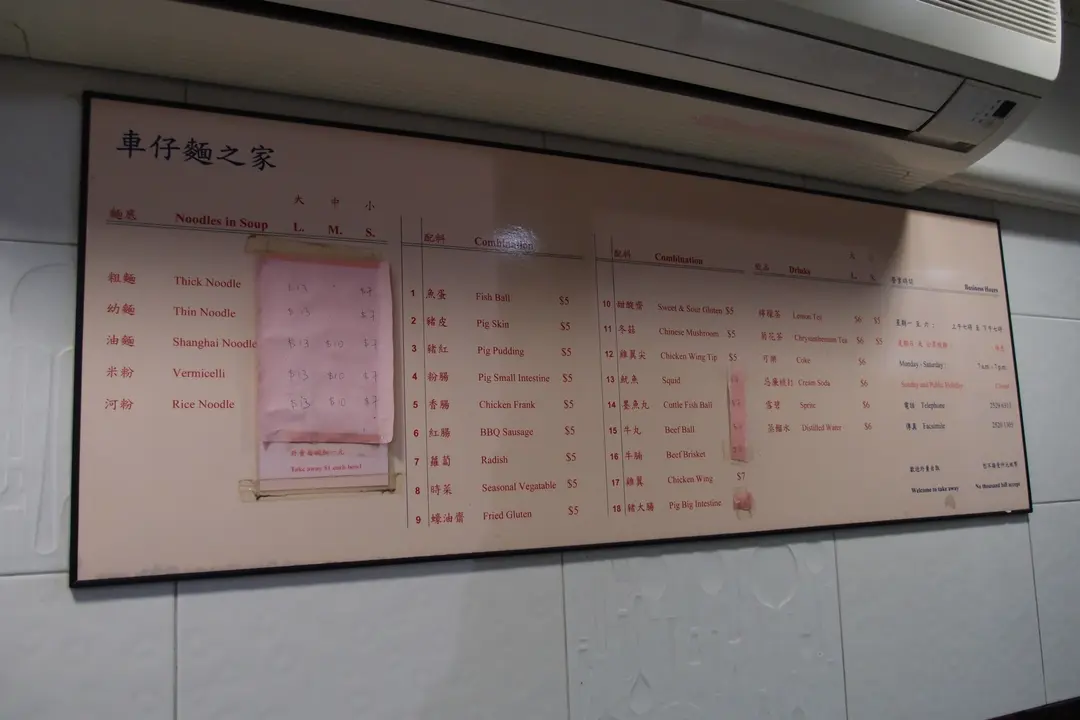 車仔麵之家
大 中 小
麵底 Noodles in Soup L. M. S.
粗麵 Thick Noodle $13 $7
幼麵 Thin Noodle $13 $7
油麵 Shanghai Noodle $13 $10 $7
米粉 Vermicelli $13 $10 $7
河粉 Rice Noodle $13 $10 $7
Take away $1 each bowl
配料 Combination
1 魚蛋 Fish Ball $5
2 豬皮 Pig Skin $5
3 豬紅 Pig Pudding $5
4 粉腸 Pig Small Intestine $5
5 香腸 Chicken Frank $5
6 紅腸 BBQ Sausage $5
7 蘿蔔 Radish $5
8 時菜 Seasonal Vegatable $5
9 蠔油齋 Fried Gluten $5
配料 Combination
10 甜酸齋 Sweet & Sour Gluten $5
11 冬菇 Chinese Mushroom $5
12 雞翼尖 Chicken Wing Tip $5
13 魷魚 Squid
14 墨魚丸 Cuttle Fish Ball
15 牛丸 Beef Ball
16 牛腩 Beef Brisket
17 雞翼 Chicken Wing $7
18 豬大腸 Pig Big Intestine
飲品 Drinks L. S.
檸檬茶 Lemon Tea $6 $5
菊花茶 Chrysanthemum Tea $6 $5
可樂 Coke $6
忌廉梳打 Cream Soda $6
雪碧 Sprite $6
蒸餾水 Distilled Water $6
營業時間 Business Hours
星期一 至 六 : 上午七時 至 下午七時
Monday - Saturday : 7 a.m - 7 p.m
Sunday and Public Holidays Closed
電話 Telephone
傳真 Facsimile
歡迎外賣自取
Welcome to take away No thousand bill accept